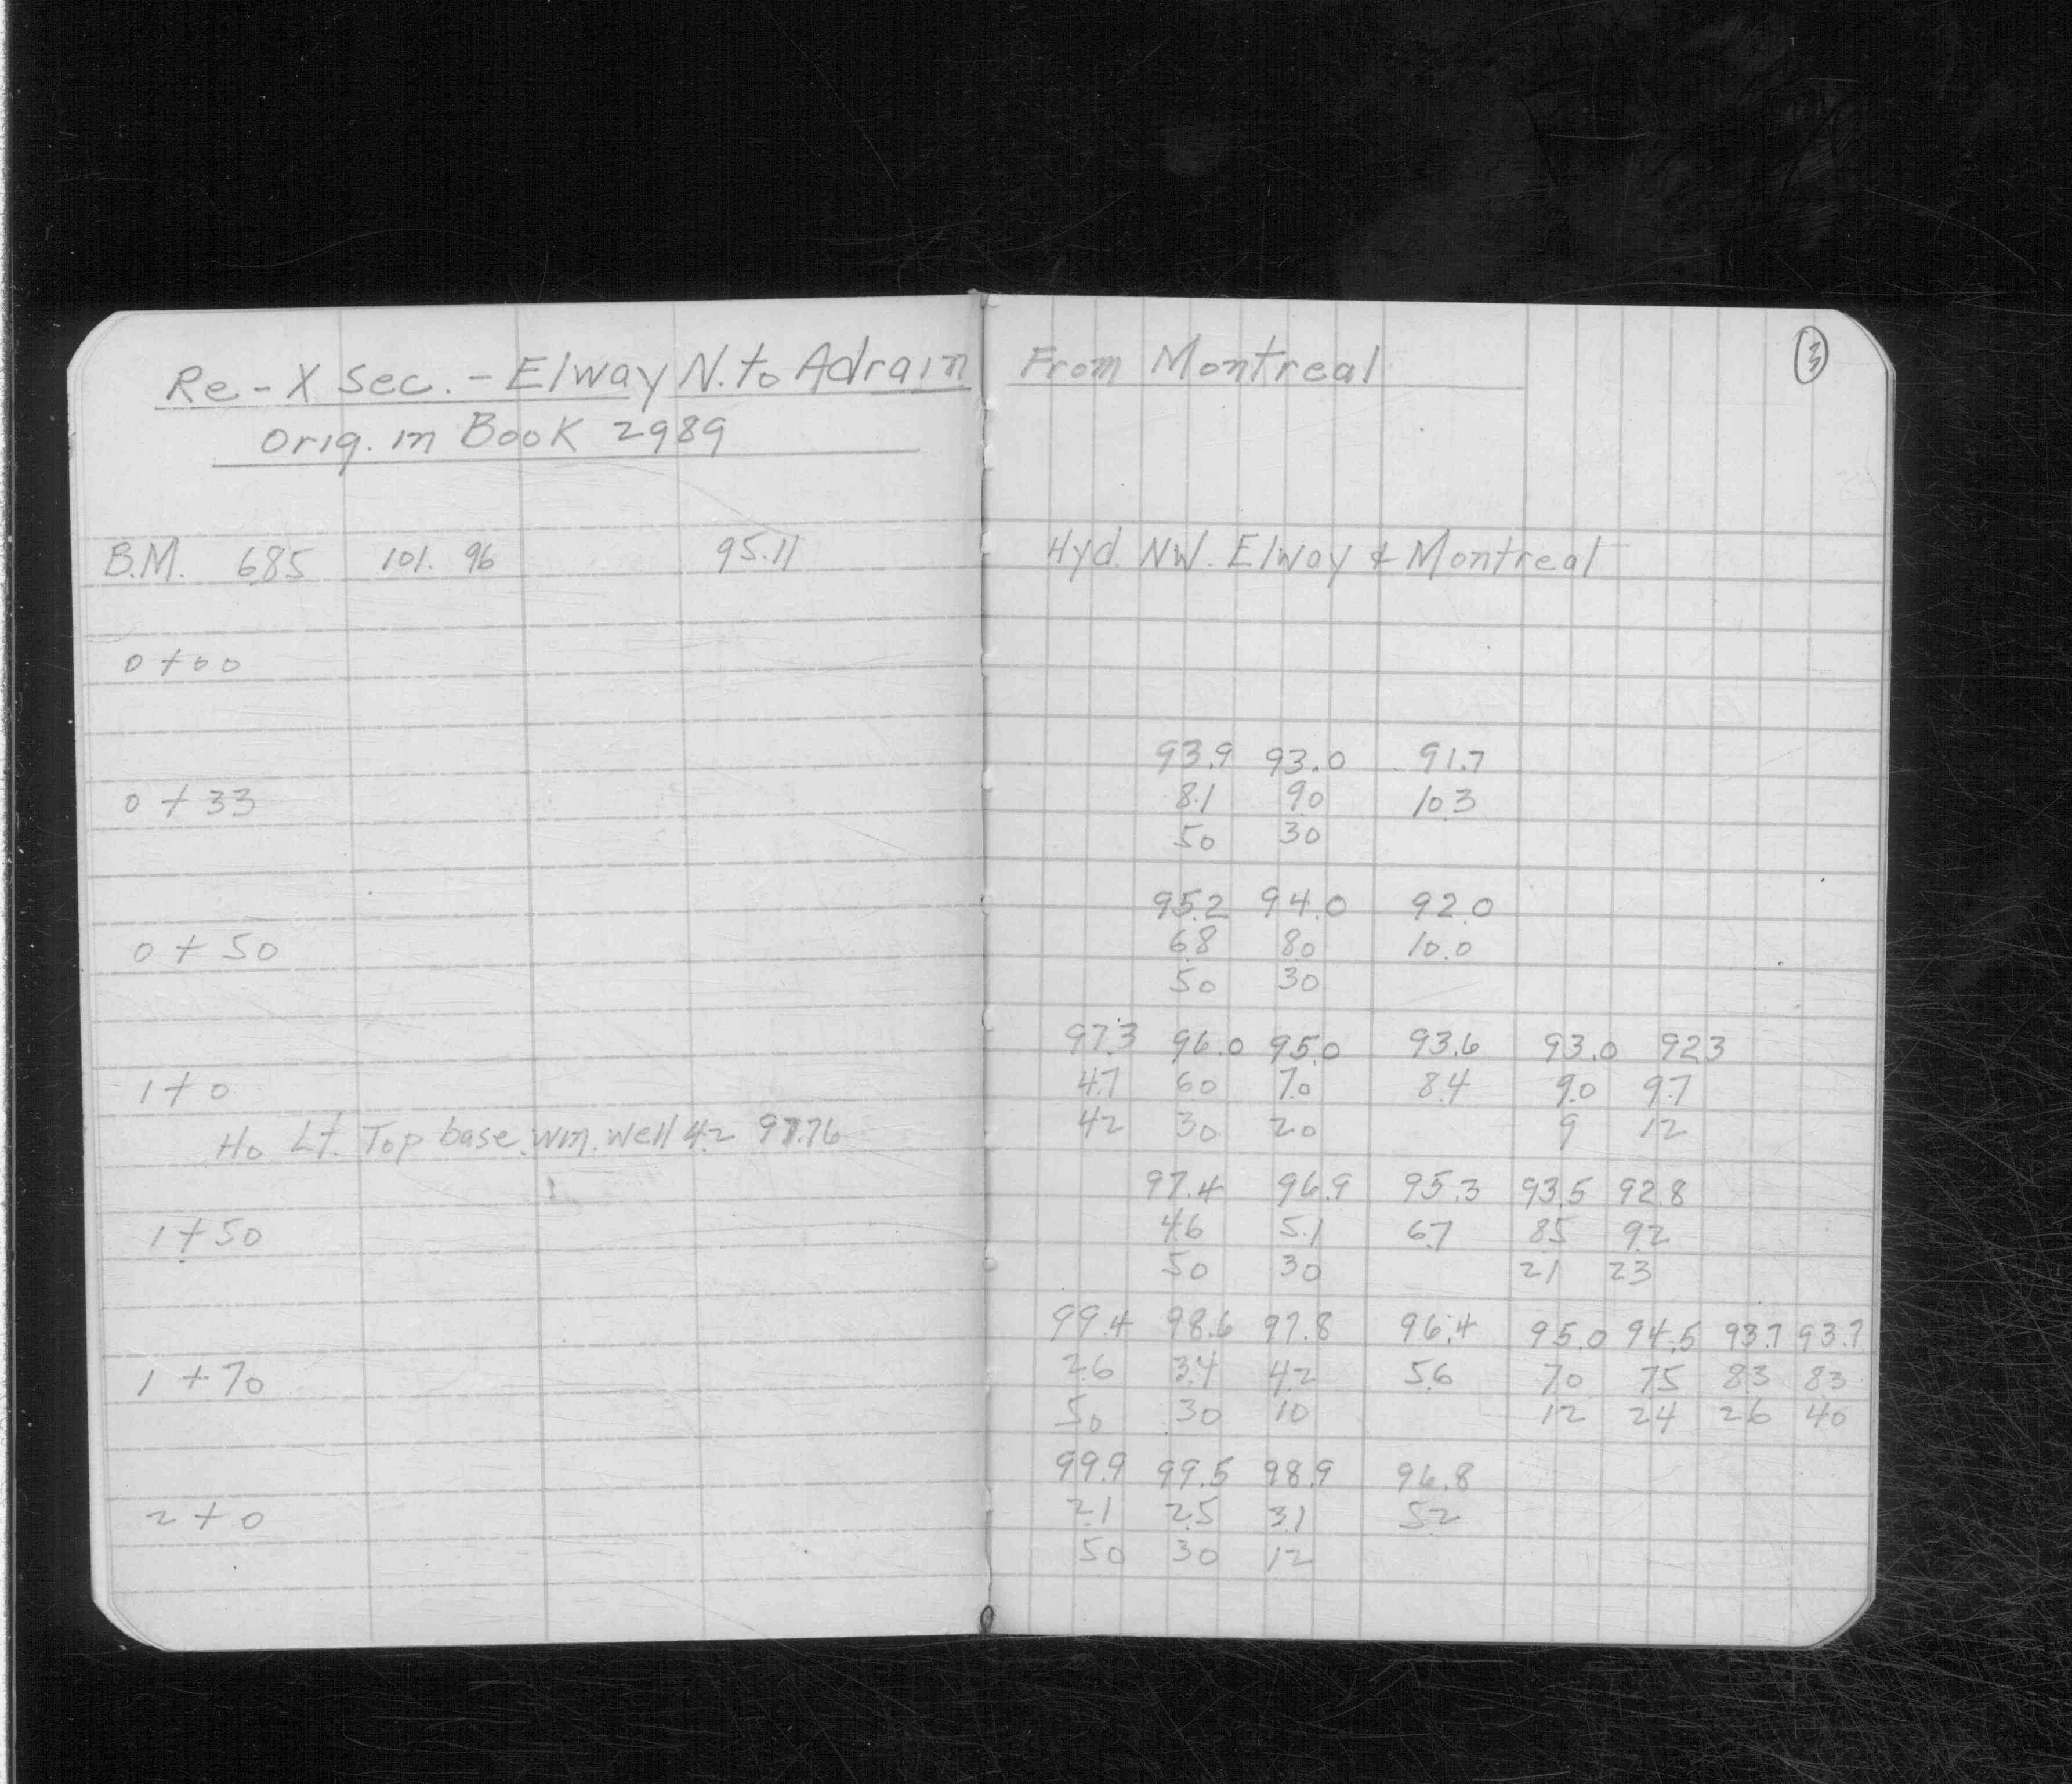 Re-X Sec. - Elway N. to Adrain From Montreal
Orig. in Book 2989
3
B.M. 6.85 101.96 95.11 Hyd. NW. Elway & Montreal
0+00
93.9 93.0 91.7
0+33 8.1 9.0 10.3
50 30
95.2 94.0 92.0
0+50 6.8 8.0 10.0
50 30
97.3 96.0 95.0 93.6 93.0 92.3
1+0 4.7 6.0 7.0 8.4 9.0 9.7
Ho Lt. Top base wm. well 4.2 97.76 42 30 20 9 12
97.4 96.9 95.3 93.5 92.8
1+50 4.6 5.1 6.7 8.5 9.2
50 30 21 23
99.4 98.6 97.8 96.4 95.0 94.5 93.7 93.7
1+70 2.6 3.4 4.2 5.6 7.0 7.5 8.3 8.3
50 30 10 12 24 26 40
99.9 99.5 98.9 96.8
2+0 2.1 2.5 3.1 5.2
50 30 12